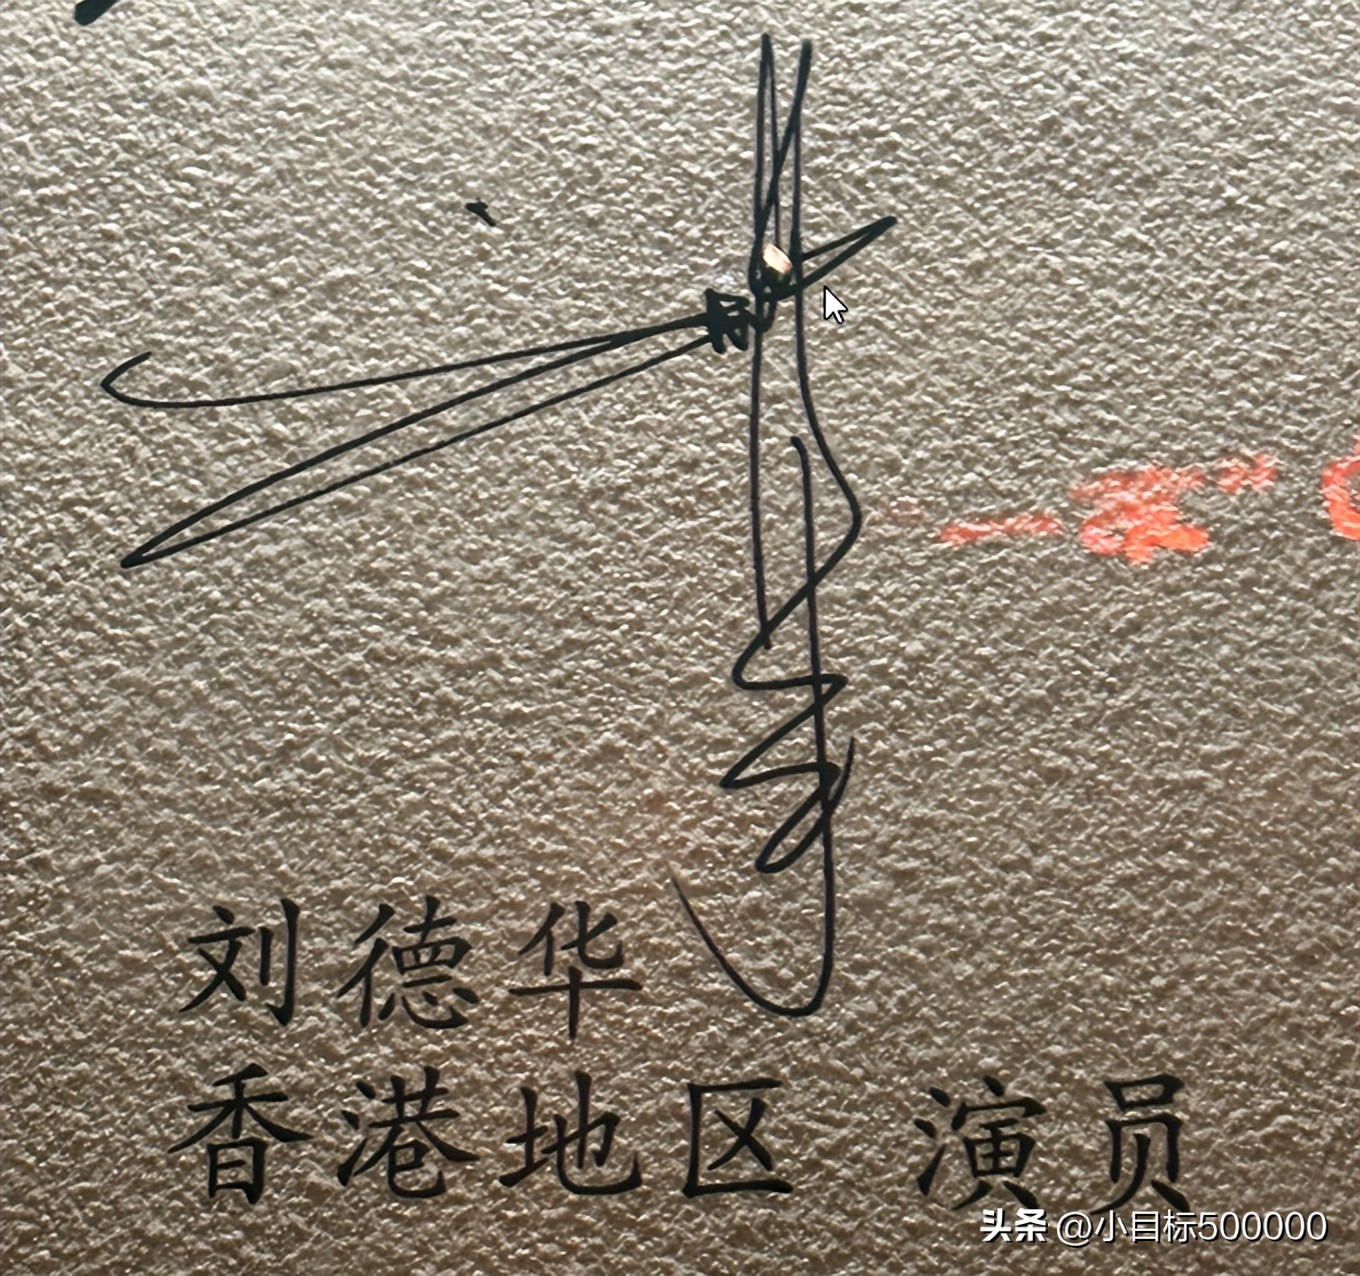 刘德华
香港地区 演员
头条 @小目标500000